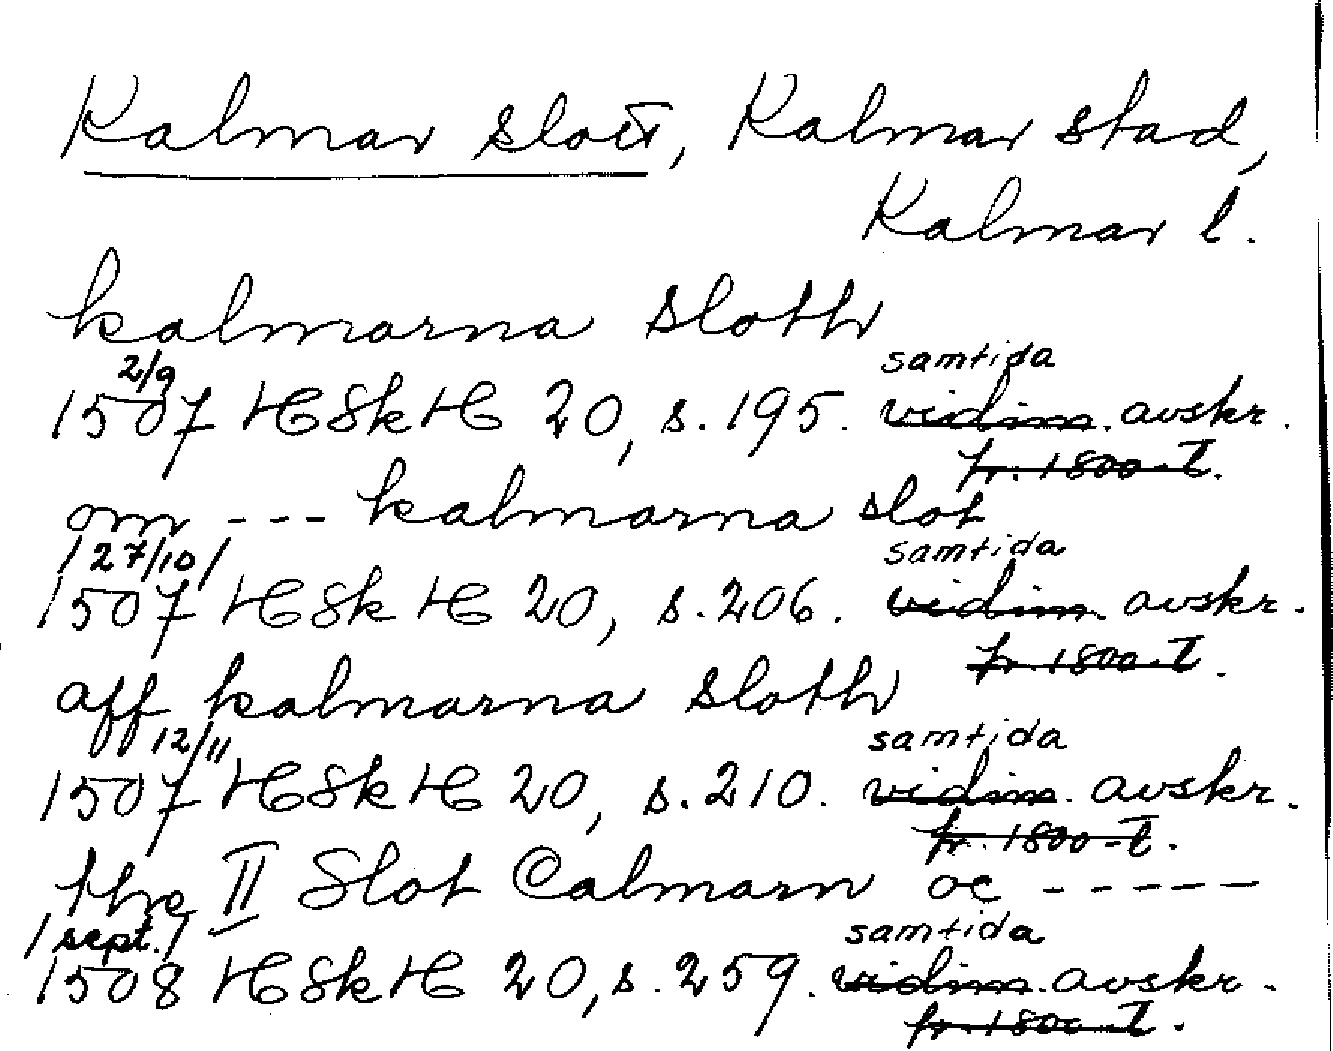 Kalmar slott, Kalmar stad,
Kalmar l.
kalmarna sloth
2/9 samtida
1507 HSkH 20, s. 195. vidim. avskr.
fr. 1800-t.
om --- kalmarna slot
/27/10/ samtida
1507 HSkH 20, s. 206. vidim. avskr.
fr. 1800-t.
aff kalmarna sloth
12/11 samtida
1507 HSkH 20, s. 210. vidim. avskr.
fr. 1800-t.
the II Slot Calmarn oc -----
/sept./ samtida
1508 HSkH 20, s. 259. vidim. avskr.
fr. 1800-t.